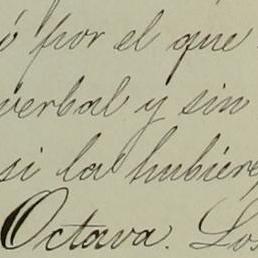 ó por el que
verbal y sin
si la hubiere,
Octava. Los